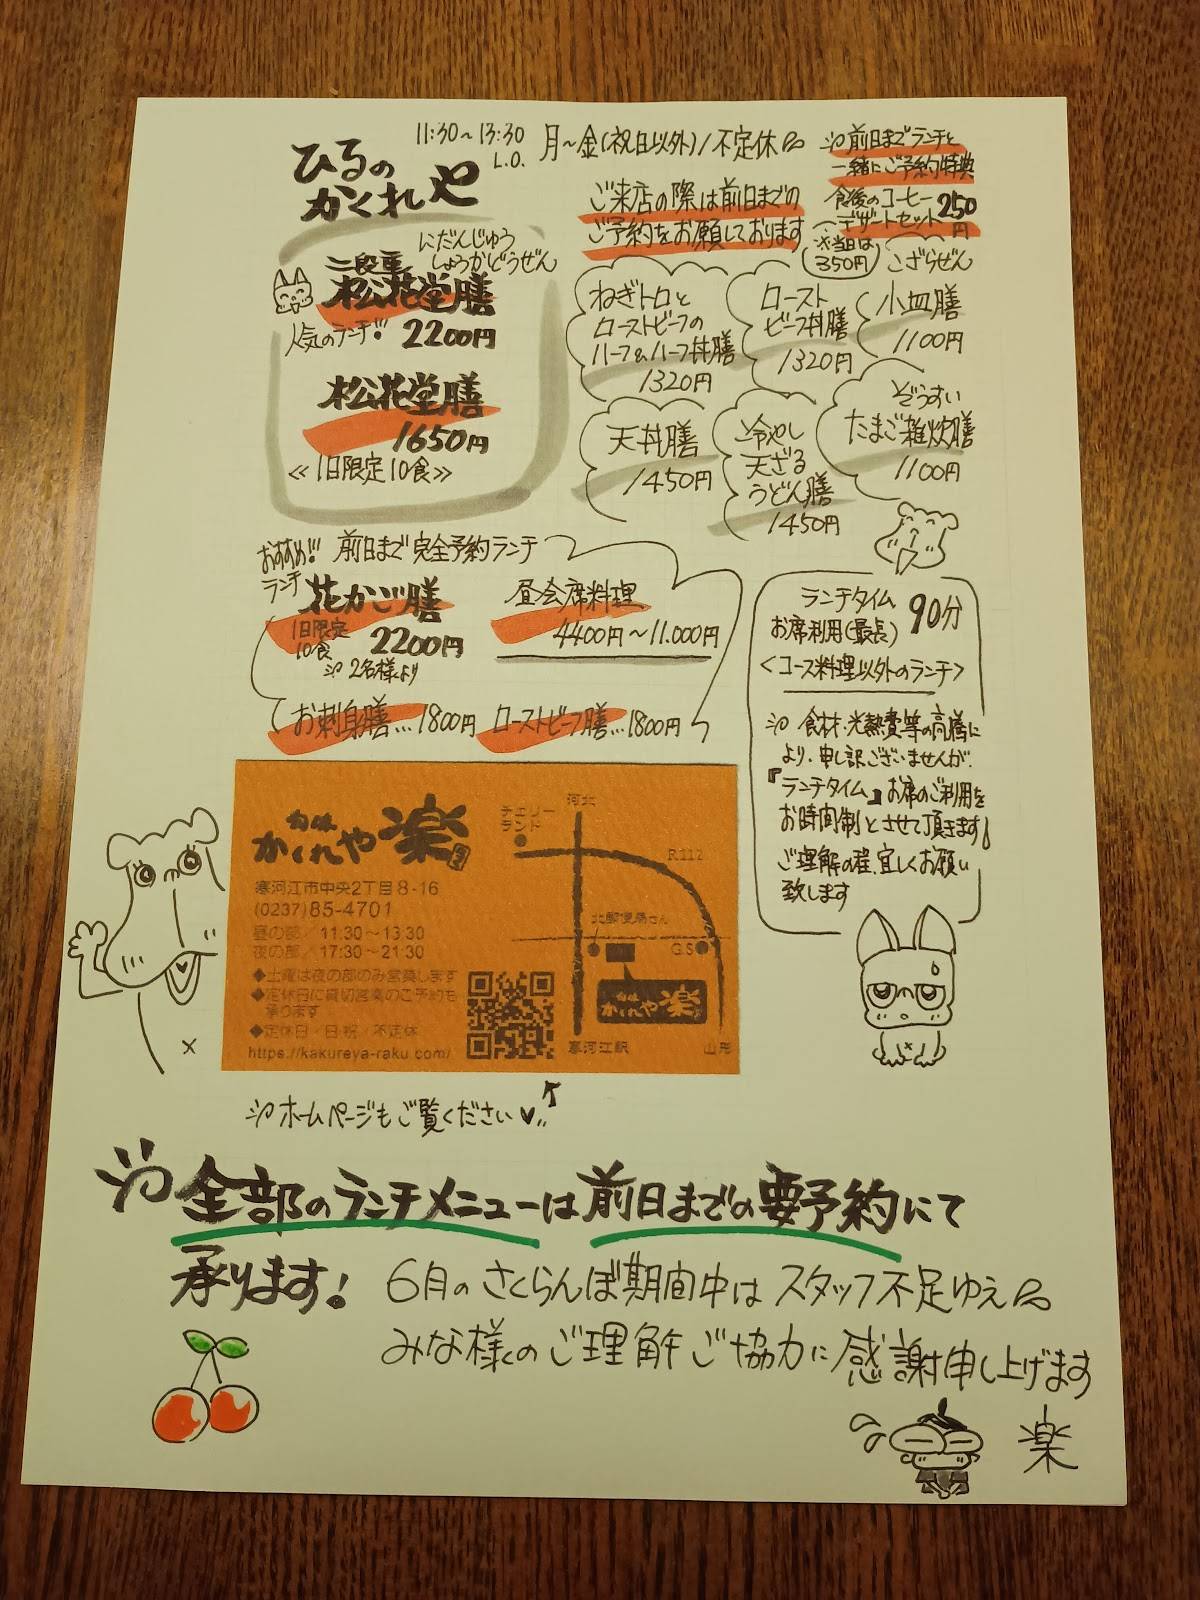 11:30~13:30
L.O.
月~金(祝日以外)/不定休
ひるの
かくれや
ご来店の際は前日までの
ご予約をお願しております
※前日までランチと
一緒にご予約特典
食後のコーヒー
デザートセット
250円
※当日は
350円
にだんじゅう
しょうかどうぜん
二段重
松花堂膳
人気のランチ!!
2200円
松花堂膳
1650円
≪1日限定10食≫
ねぎトロと
ローストビーフの
ハーフ&ハーフ丼膳
1320円
ロースト
ビーフ丼膳
1320円
こざらぜん
小皿膳
1100円
天丼膳
1450円
冷やし
天ざる
うどん膳
1450円
ぞうすい
たまご雑炊膳
1100円
おすすめ!!
ランチ
前日まで完全予約ランチ
花かご膳
1日限定
10食
2200円
※2名様より
昼会席料理
4400円~11.000円
お刺身膳…1800円
ローストビーフ膳…1800円
ランチタイム
お席利用(最長)
90分
<コース料理以外のランチ>
※食材・光熱費等の高騰に
より、申し訳ございませんが、
『ランチタイム』お席のご利用を
お時間制とさせて頂きます
ご理解の程、宜しくお願い
致します
旬味
かくれや楽
寒河江市中央2丁目8-16
(0237)85-4701
昼の部/11:30~13:30
夜の部/17:30~21:30
◆土曜は夜の部のみ営業します
◆定休日に貸切営業のご予約も
承ります
◆定休日/日・祝/不定休
https://kakureya-raku.com/
チェリー
ランド
河北
R112
北郵便局さん
G.S
旬味
かくれや楽
寒河江駅
山形
※ホームページもご覧ください♥
※全部のランチメニューは前日までの要予約にて
承ります!
6月のさくらんぼ期間中はスタッフ不足ゆえ
みな様のご理解ご協力に感謝申し上げます
楽